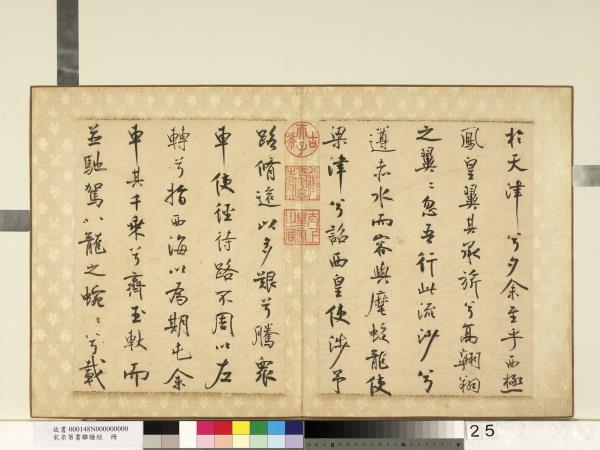 於天津兮夕余至乎西極
鳳皇翼其承旂兮高翱翔
之翼〻忽吾行此流沙兮
遵赤水而容與麾蛟龍使
梁津兮詔西皇使涉予
路脩遠以多艱兮騰眾
車使徑待路不周以左
轉兮指西海以為期屯余
車其千乘兮齊玉軑而
並馳駕八龍之蜿〻兮載
古希天子
故書 000148N000000000
宋米芾書離騷經 冊
25